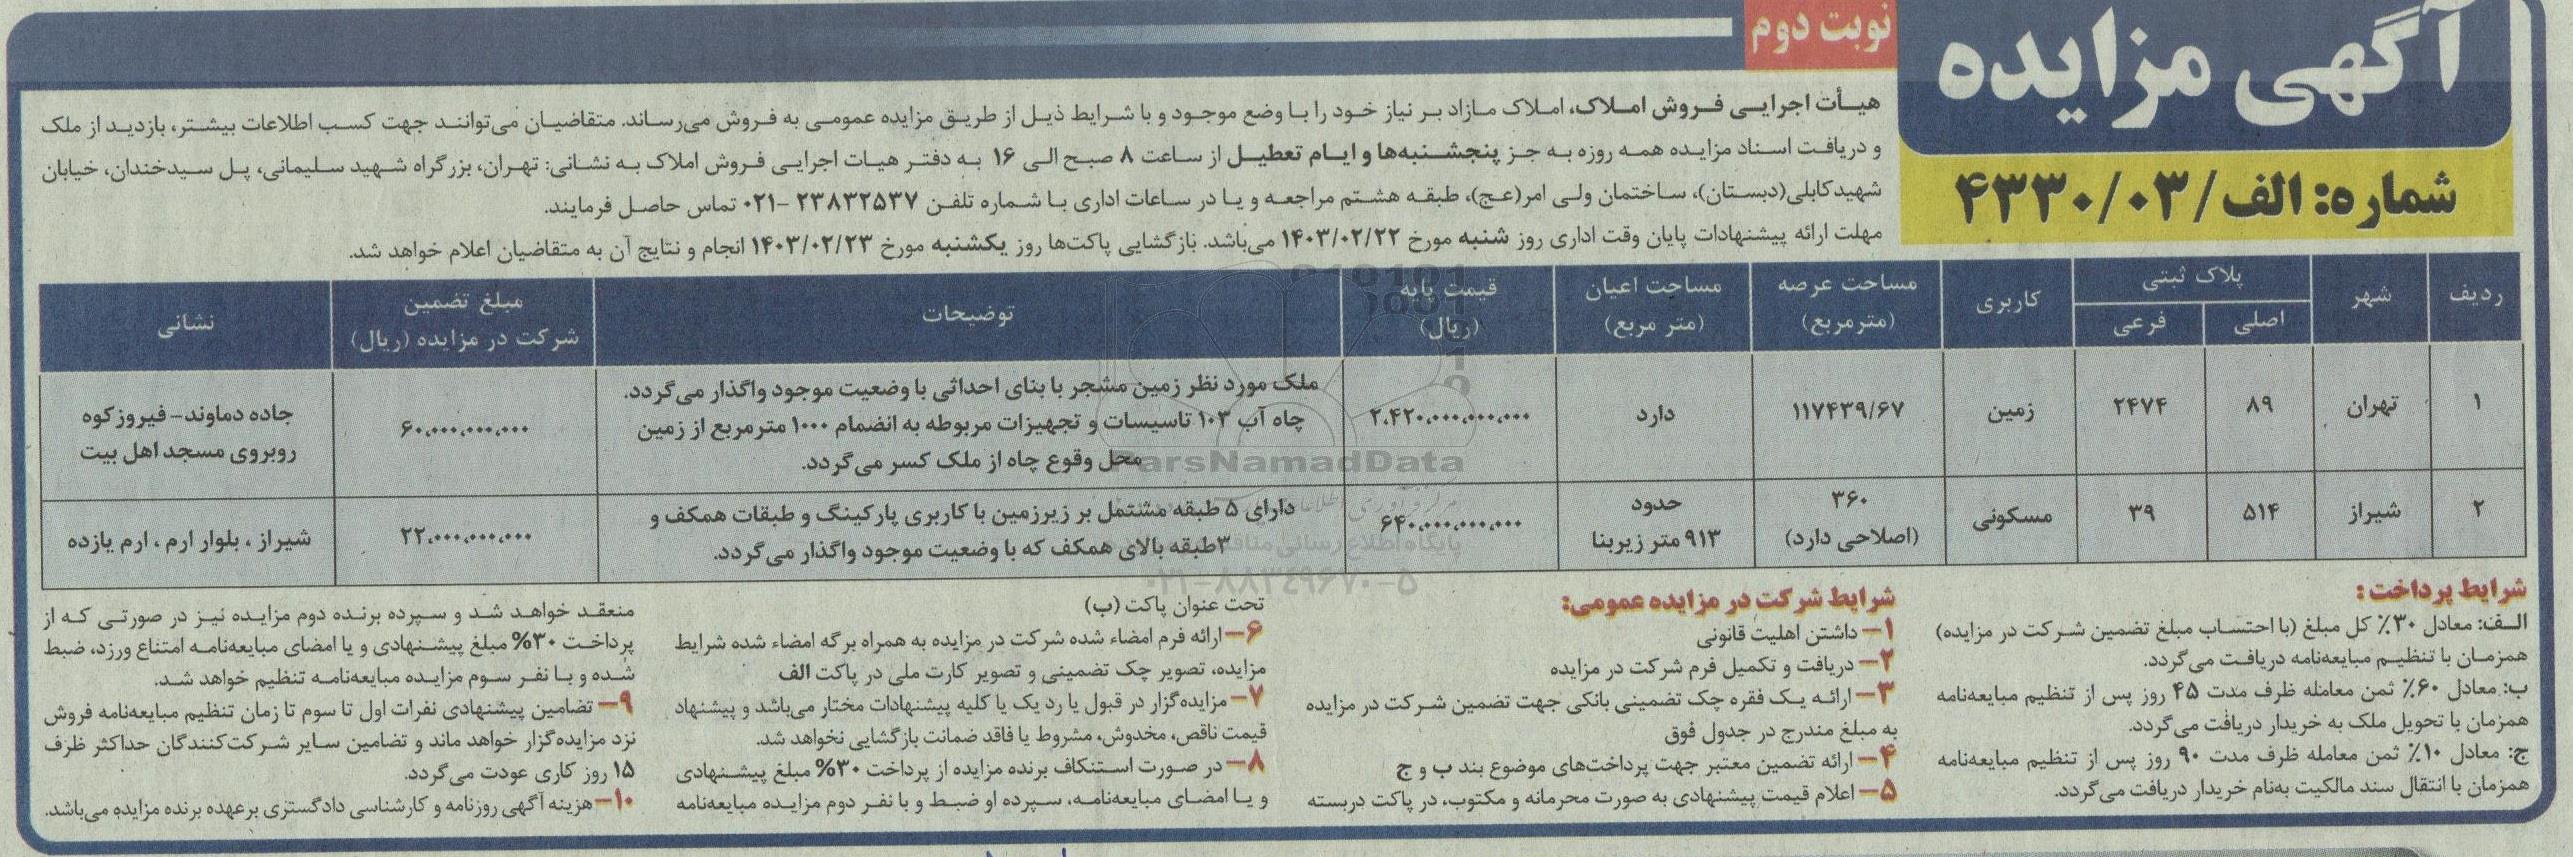 آگهی مزایده
نوبت دوم
شماره: الف/۴۳۳۰/۰۳
هیـأت اجرایـی فـروش امـلاک، امـلاک مـازاد بـر نیـاز خـود را بـا وضع موجـود و با شـرایط ذیـل از طریـق مزایده عمومـی به فـروش می‌رسـاند. متقاضیـان می‌تواننـد جهت کسـب اطلاعات بیشـتر، بازدیـد از ملک
و دریافـت اسـناد مزایـده همـه روزه بـه جـز پنجشـنبه‌ها و ایـام تعطیـل از سـاعت ۸ صبـح الـی ۱۶ بـه دفتـر هیـات اجرایـی فـروش املاک بـه نشـانی: تهـران، بزرگراه شـهید سـلیمانی، پـل سـیدخندان، خیابان
شهیدکابلی(دبستان)، سـاختمان ولـی امر(عـج)، طبقـه هشـتم مراجعـه و یـا در سـاعات اداری بـا شـماره تلفـن ۲۳۸۳۲۵۳۷ -۰۲۱ تماس حاصـل فرماینـد.
مهلت ارائه پیشنهادات پایان وقت اداری روز شنبه مورخ ۱۴۰۳/۰۲/۲۲ می‌باشد. بازگشایی پاکت‌ها روز یکشنبه مورخ ۱۴۰۳/۰۲/۲۳ انجام و نتایج آن به متقاضیان اعلام خواهد شد.
ردیف شهر پلاک ثبتی کاربری مساحت عرصه (مترمربع) مساحت اعیان (متر مربع) قیمت پایه (ریال) توضیحات مبلغ تضمین شرکت در مزایده (ریال) نشانی
اصلی فرعی
۱ تهران ۸۹ ۲۴۷۴ زمین ۱۱۷۴۳۹/۶۷ دارد ۲،۴۲۰،۰۰۰،۰۰۰،۰۰۰
ملک مورد نظر زمین مشجر با بنای احداثی با وضعیت موجود واگذار می‌گردد.
چاه آب ۱۰۳ تاسیسات و تجهیزات مربوطه به انضمام ۱۰۰۰ مترمربع از زمین
محل وقوع چاه از ملک کسر می‌گردد.
۶۰،۰۰۰،۰۰۰،۰۰۰
جاده دماوند- فیروزکوه
روبروی مسجد اهل بیت
۲ شیراز ۵۱۴ ۳۹ مسکونی ۳۶۰ (اصلاحی دارد) حدود ۹۱۳ متر زیربنا ۶۴۰،۰۰۰،۰۰۰،۰۰۰
دارای ۵ طبقه مشتمل بر زیرزمین با کاربری پارکینگ و طبقات همکف و
۳طبقه بالای همکف که با وضعیت موجود واگذار می‌گردد.
۲۲،۰۰۰،۰۰۰،۰۰۰
شیراز ، بلوار ارم ، ارم یازده
ParsNamadData
۰۲۱-۸۸۳۴۹۶۷۰-۵
شرایط پرداخت:
الـف: معادل ۳۰٪ کل مبلغ (با احتسـاب مبلغ تضمین شـرکت در مزایده)
همزمـان با تنظیـم مبایعه‌نامه دریافـت می‌گردد.
ب: معادل ۶۰٪ ثمن معامله ظرف مدت ۴۵ روز پس از تنظیم مبایعه‌نامه
همزمان با تحویل ملک به خریدار دریافت می‌گردد.
ج: معادل ۱۰٪ ثمن معامله ظرف مدت ۹۰ روز پس از تنظیم مبایعه‌نامه
همزمان با انتقال سند مالکیت به‌نام خریدار دریافت می‌گردد.
شرایط شرکت در مزایده عمومی:
۱- داشتن اهلیت قانونی
۲- دریافت و تکمیل فرم شرکت در مزایده
۳- ارائـه یـک فقـره چک تضمینی بانکی جهت تضمین شـرکت در مزایده
به مبلغ مندرج در جدول فوق
۴- ارائه تضمین معتبر جهت پرداخت‌های موضوع بند ب و ج
۵- اعلام قیمت پیشنهادی به صورت محرمانه و مکتوب، در پاکت دربسته
تحت عنوان پاکت (ب)
۶- ارائه فرم امضاء شده شرکت در مزایده به همراه برگه امضاء شده شرایط
مزایده، تصویر چک تضمینی و تصویر کارت ملی در پاکت الف
۷- مزایده‌گزار در قبول یا رد یک یا کلیه پیشنهادات مختار می‌باشد و پیشنهاد
قیمت ناقص، مخدوش، مشروط یا فاقد ضمانت بازگشایی نخواهد شد.
۸- در صـورت اسـتنکاف برنده مزایده از پرداخت ۳۰% مبلغ پیشـنهادی
و یـا امضـای مبایعه‌نامـه، سـپرده او ضبـط و با نفـر دوم مزایـده مبایعه‌نامه
منعقـد خواهـد شـد و سـپرده برنده دوم مزایـده نیـز در صورتـی کـه از
پرداخـت ۳۰% مبلغ پیشـنهادی و یا امضای مبایعه‌نامـه امتناع ورزد، ضبط
شـده و بـا نفـر سـوم مزایـده مبایعه‌نامـه تنظیم خواهد شـد.
۹- تضامین پیشنهادی نفرات اول تا سوم تا زمان تنظیم مبایعه‌نامه فروش
نزد مزایده‌گزار خواهد ماند و تضامین سـایر شـرکت‌کنندگان حداکثر ظرف
۱۵ روز کاری عودت می‌گردد.
۱۰- هزینه آگهی روزنامه و کارشناسی دادگستری برعهده برنده مزایده می‌باشد.